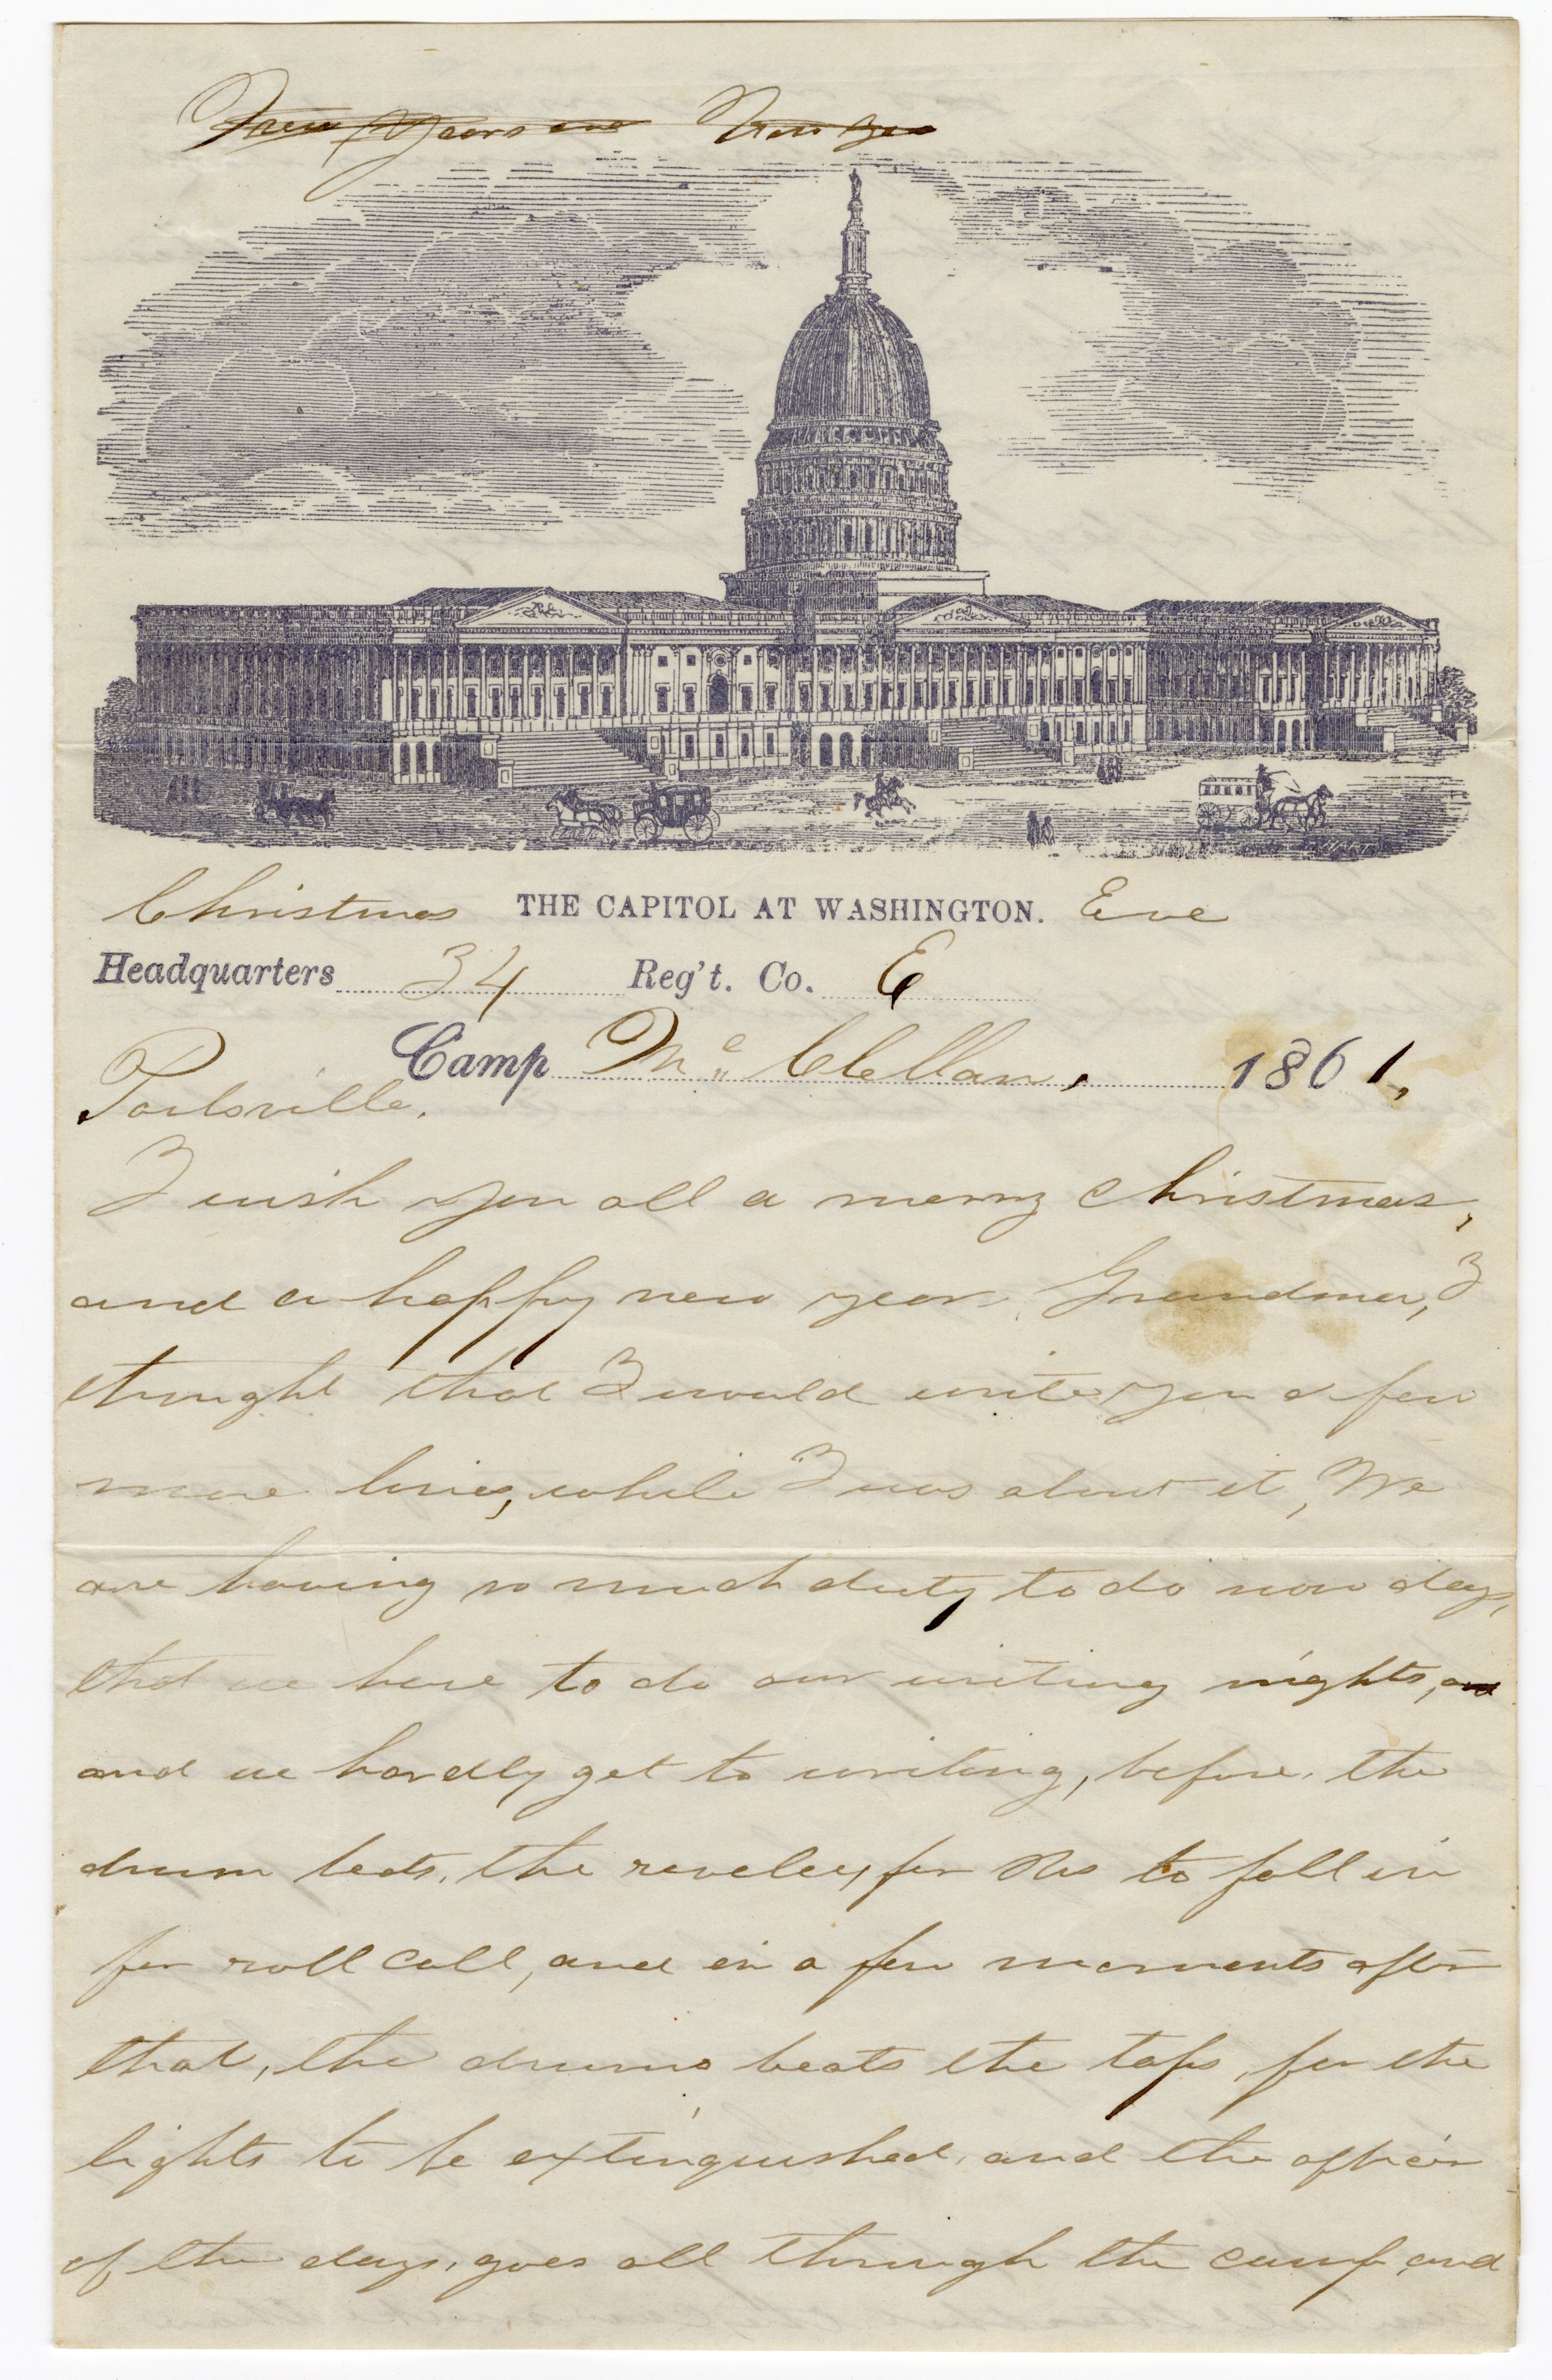 New Years eve New Yea
Christmas THE CAPITOL AT WASHINGTON. Eve
Headquarters 34 Reg't. Co. E
Camp Mc Clellan, 1861,
I wish you all a merry christmas,
and a happy new year. Grandma, I
thought that I would write you a few
more lines, while I was about it, We
are having so much duty to do now days,
that we have to do our writing nights, and
and we hardly get to writing, before, the
drum beats, the reveley, for us to fall in
for roll call, and in a few moments after
that, the drums beats the taps, for the
lights to be extinguished, and the officer
of the days, goes all through the camp, and